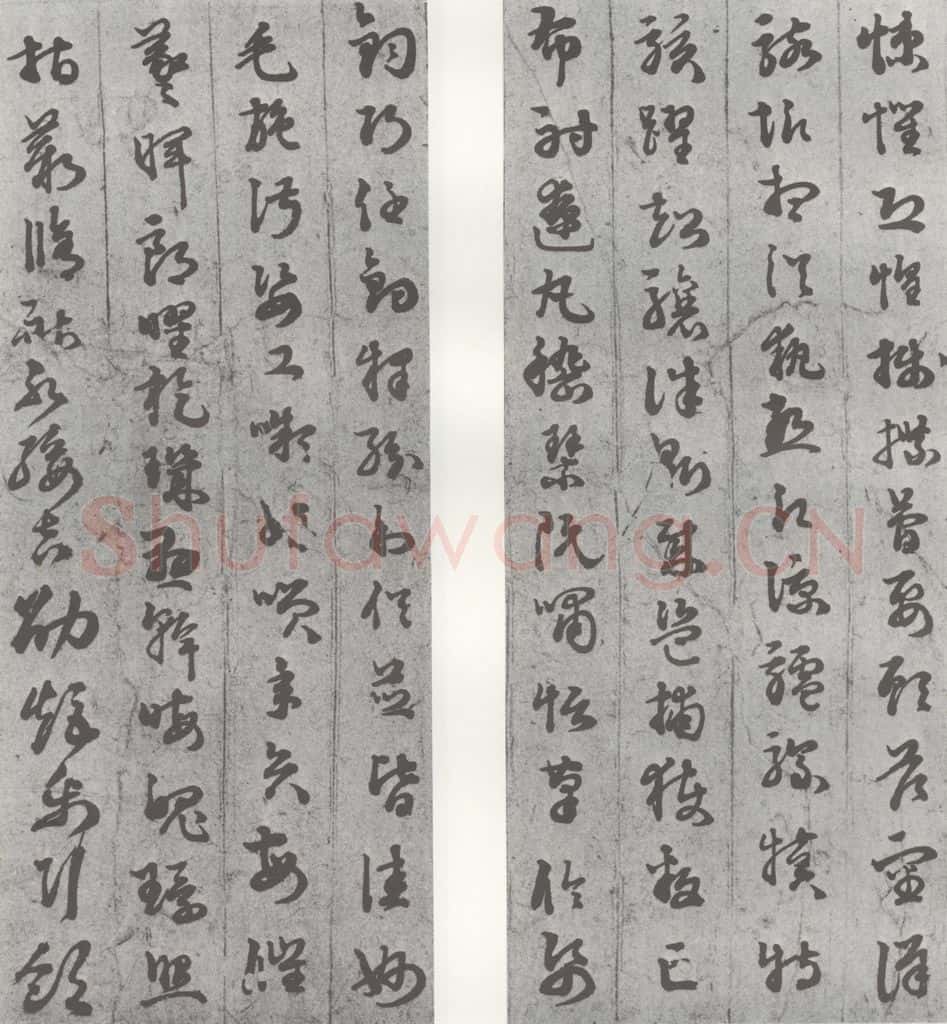 悚懼恐惶牋牒簡要顧答審詳
骸垢想浴執熱願涼驢騾犢特
駭躍超驤誅斬賊盜捕獲叛亡
布射遼丸嵇琴阮嘯恬筆倫紙
鈞巧任釣釋紛利俗並皆佳妙
毛施淑姿工嚬妍咲年矢每催
羲暉朗曜旋璣懸斡晦魄環照
指薪脩祜永綏吉劭矩步引領
Shufawang.CN